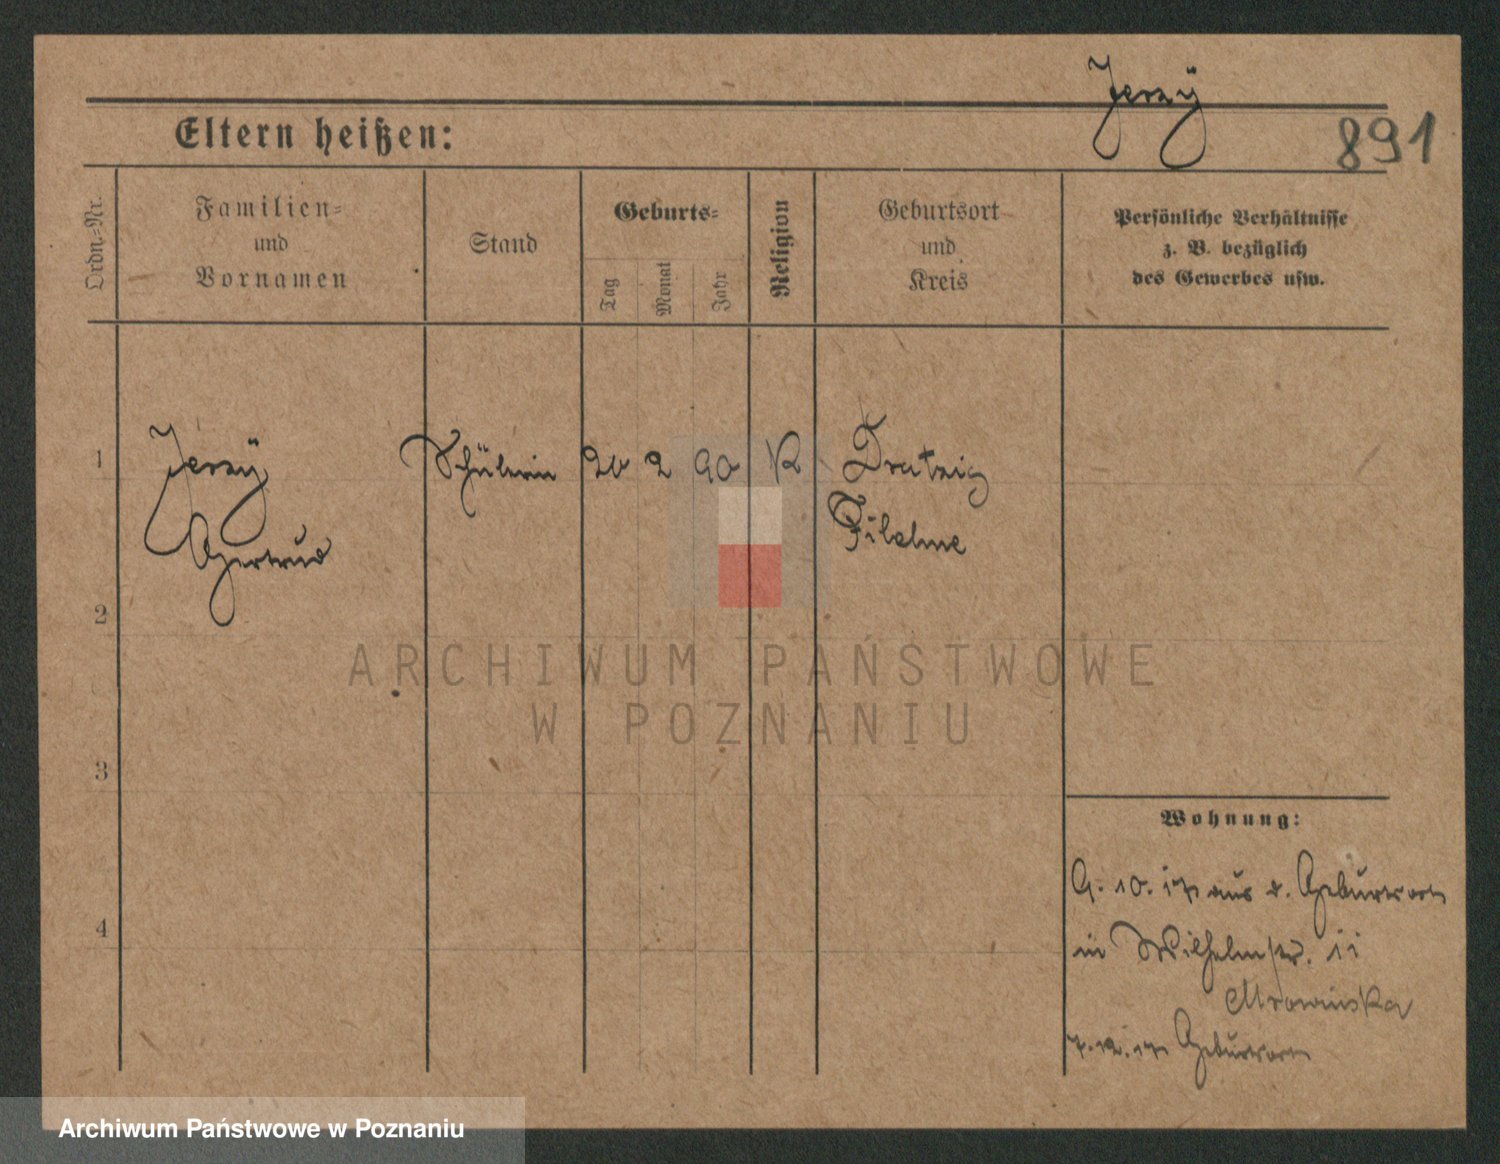 Jerzÿ
Eltern heißen:
891
Ordn.-Nr.
Familien-
und
Vornamen
Stand
Geburts-
Tag
Monat
Jahr
Religion
Geburtsort
und
Kreis
Persönliche Verhältnisse
z. B. bezüglich
des Gewerbes usw.
1 Jerzÿ Schülerin 20 2 90 K Dratzig
Gertrud Filehne
2
3
4
Wohnung:
9. 10. 17 aus d. Geburtsort
in Wilhelmstr. 11
Mrowinska
7.12.17 Geburtsort
ARCHIWUM PAŃSTWOWE
W POZNANIU
Archiwum Państwowe w Poznaniu